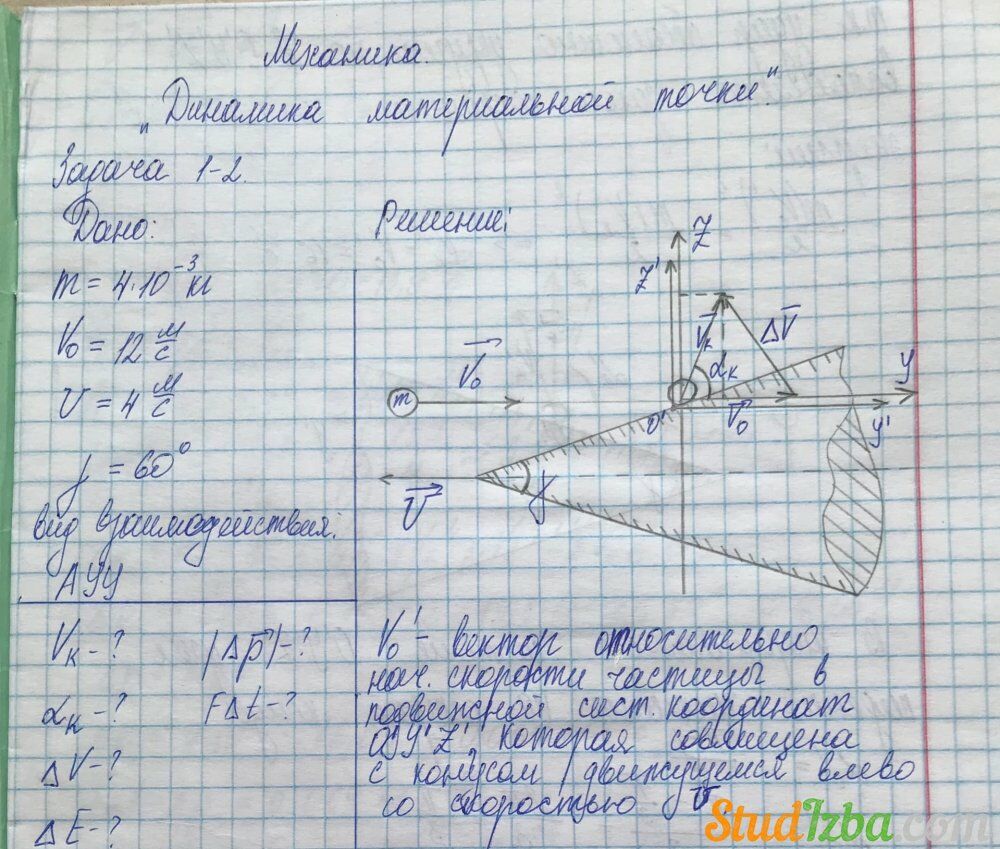 Механика.
"Динамика материальной точки."
Задача 1-2.
Дано:
m = 4·10⁻³ кг
V₀ = 12 м/с
υ = 4 м/с
γ = 60°
вид взаимодействия:
АУУ
Vк - ?
|Δp⃗| - ?
αк - ?
FΔt - ?
ΔV - ?
ΔE - ?
Решение:
Z
Z'
V⃗к
ΔV⃗
αк
V⃗₀
m
O'
V⃗₀
y
y'
υ⃗
γ
V₀' - вектор относительно
нач. скорости частицы в
подвижной сист. координат
O'Y'Z', которая совмещена
с конусом, движущемся влево
со скоростью υ
StudIzba.com